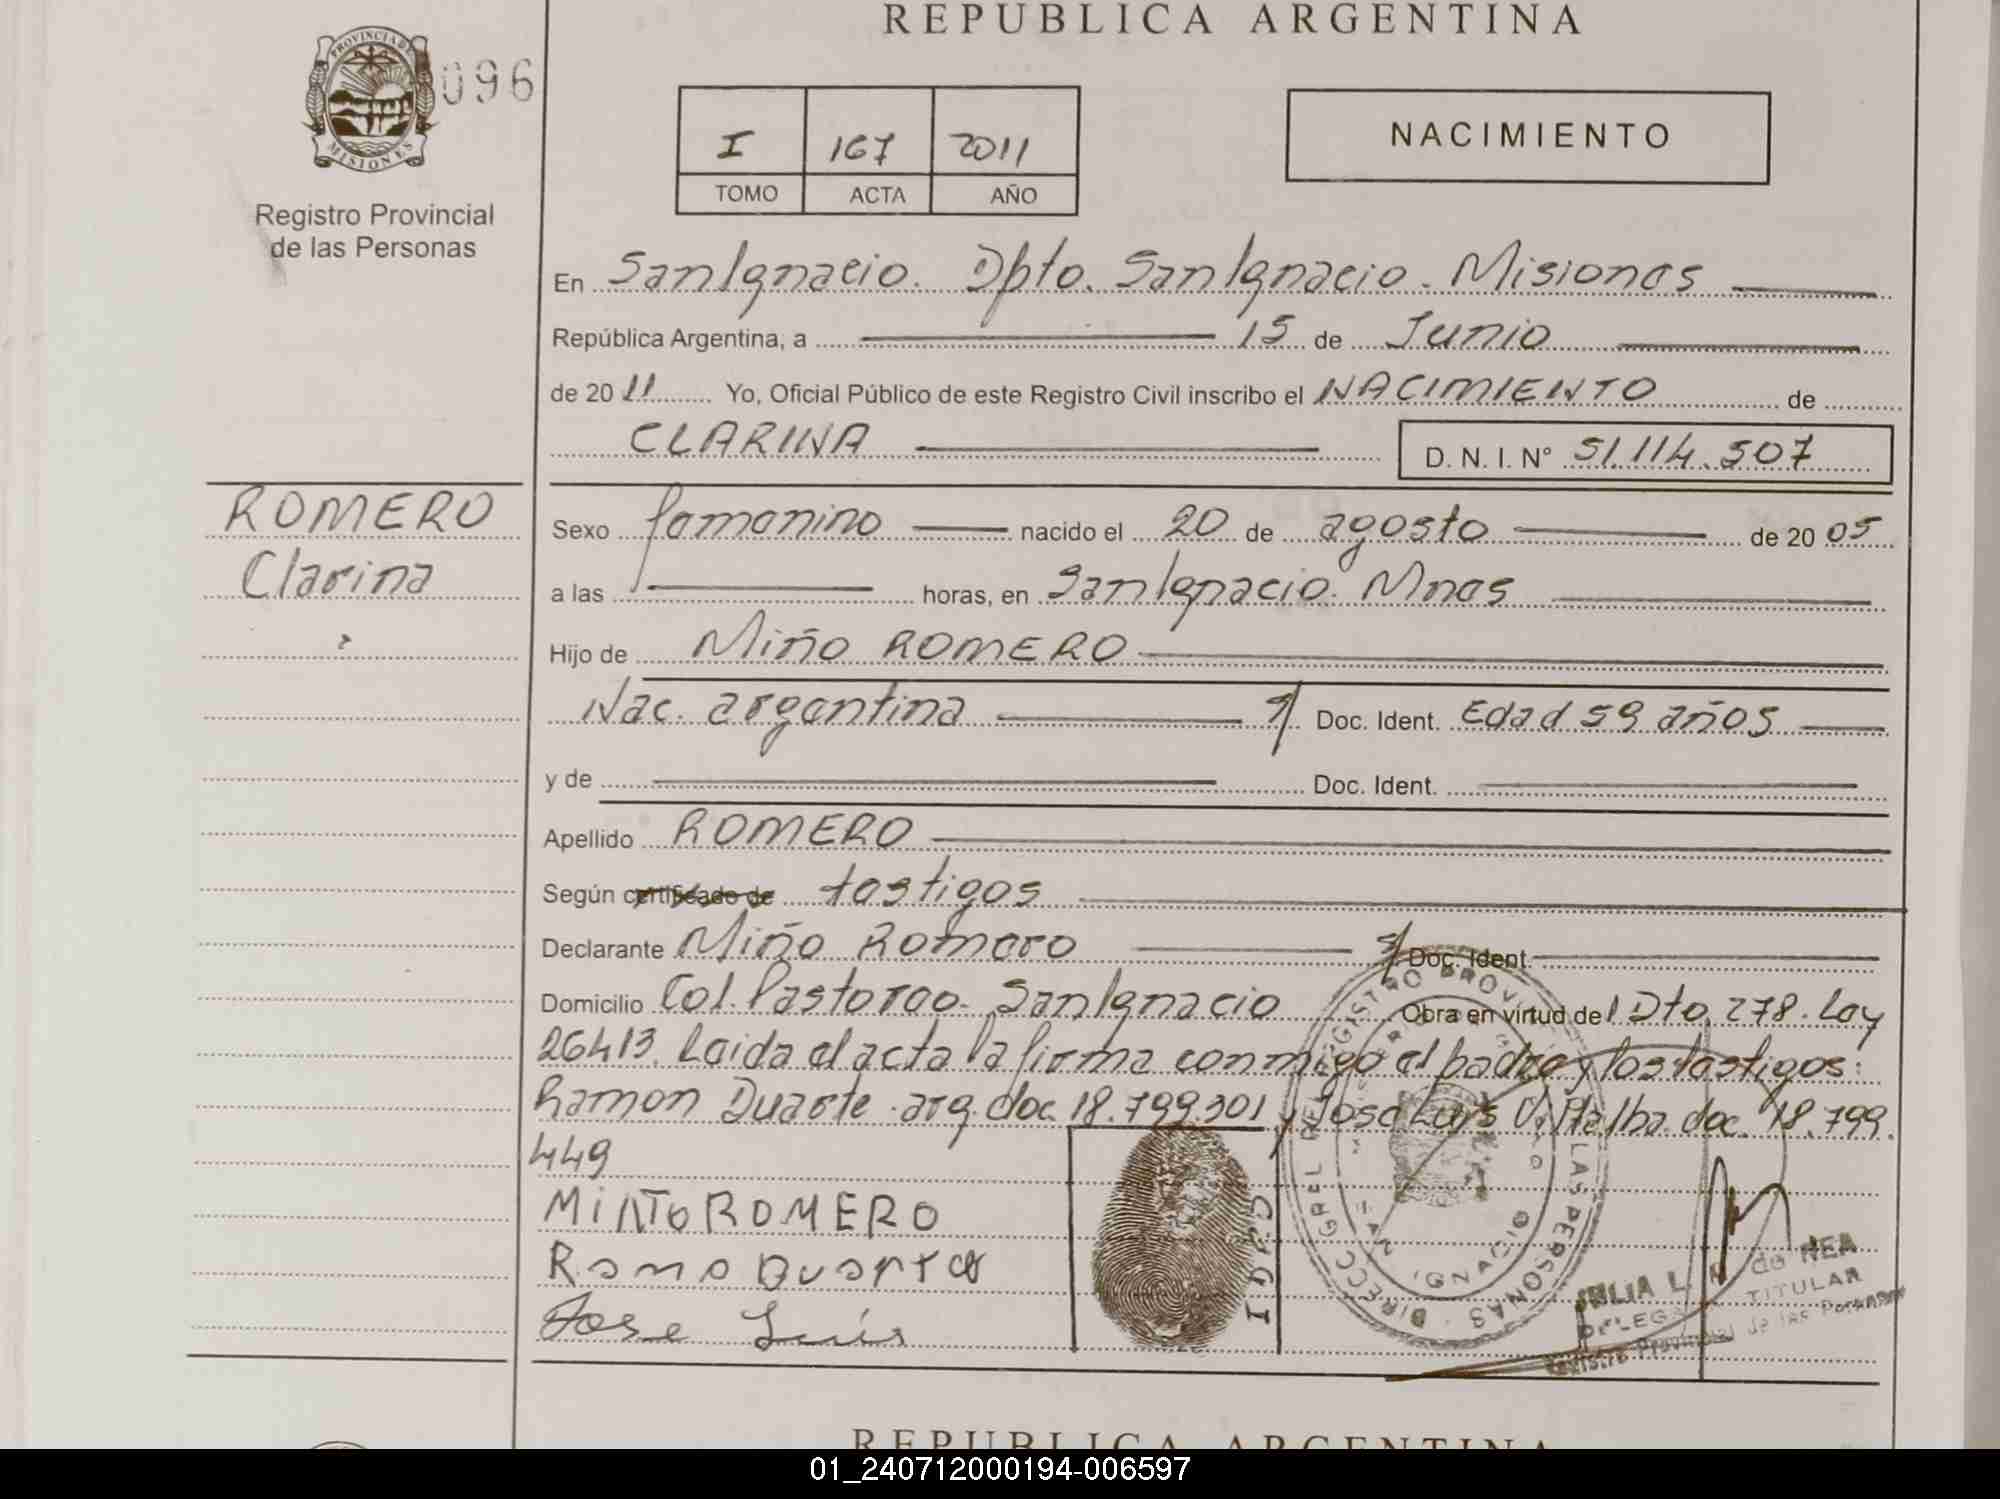 REPUBLICA ARGENTINA
PROVINCIA DE
MISIONES
096
Registro Provincial
de las Personas
I 167 2011
TOMO ACTA AÑO
NACIMIENTO
En San Ignacio. Dpto. San Ignacio. Misiones
República Argentina, a 15 de Junio
de 20 11 Yo, Oficial Público de este Registro Civil inscribo el NACIMIENTO de
CLARINA D. N. I. N° 51.114.507
ROMERO
Clarina
Sexo femenino nacido el 20 de agosto de 20 05
a las horas, en San Ignacio. Mnes
Hijo de Miño ROMERO
Nac. argentina s/ Doc. Ident. Edad 59 años
y de Doc. Ident.
Apellido ROMERO
Según certificado de testigos
Declarante Miño Romero s/ Doc. Ident.
Domicilio Col. Pastoreo. San Ignacio Obra en virtud del Dto 278. Ley
26413. Leida el acta la firma conmigo el padre y los testigos:
Ramon Duarte. arg. doc. 18.799.301 y Jose Luis Villalba doc. 18.799.
449
MiÑTo ROMERO
Ramo Duarte
Jose Luis
I DGPD
DIRECC GRAL DEL REGISTRO PROVINCIAL DE LAS PERSONAS
SAN IGNACIO
JULIA L. de NEA
DELEG TITULAR
Registro Provincial de las Personas
REPUBLICA ARGENTINA
01_240712000194-006597